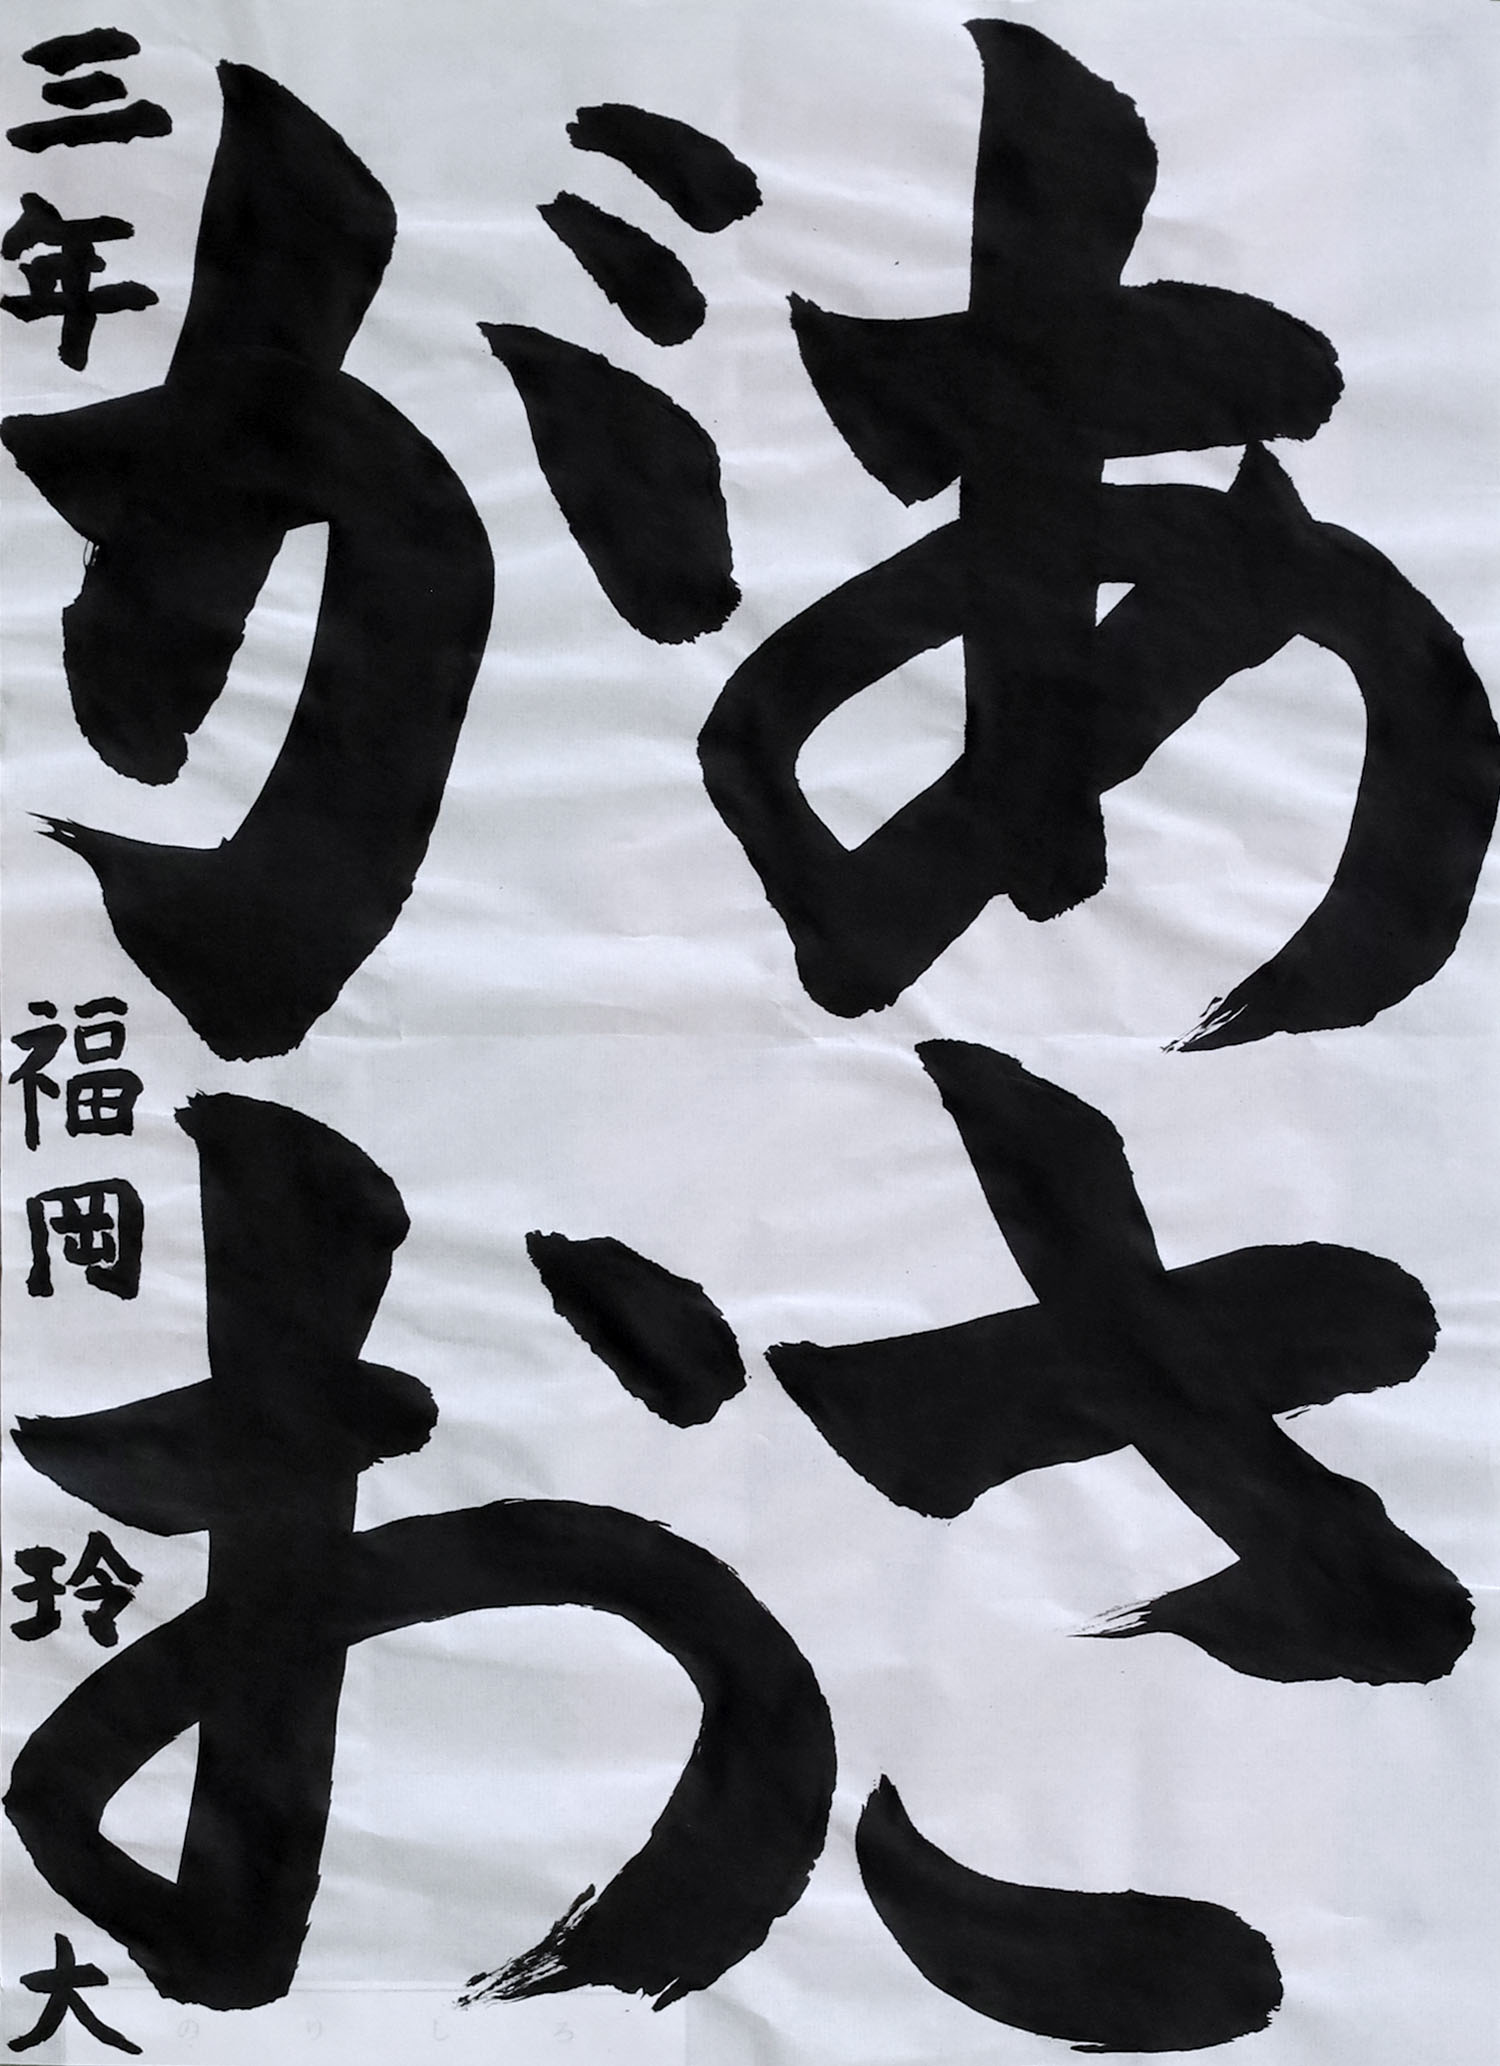 あさ
がお
三年 福岡玲大
のりしろ